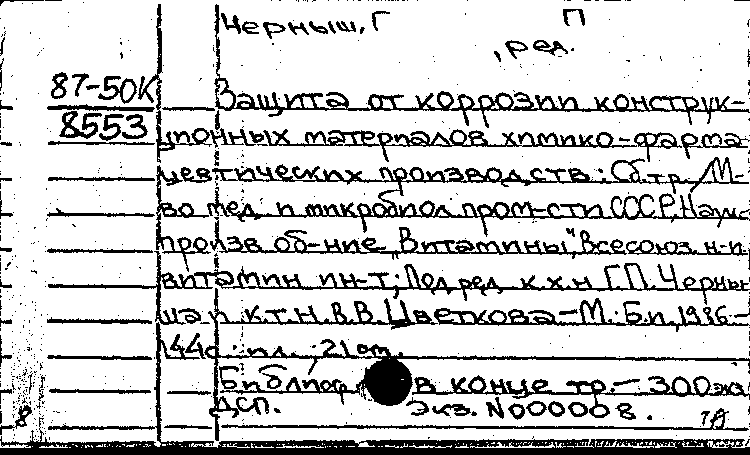 Черныш, Г П
, ред.
87-50К
8553
Защита от коррозии конструк-
ционных материалов химико-фарма
цевтических производств: Сб. тр. / М-
во мед. и микробиол пром-сти СССР, Науч-
произв об-ние "Витамины", Всесоюз. н-и
витамин ин-т; Под ред. к.х.н Г.П. Черны
ша и к.т.н. В.В. Цветкова - М.: Б.и., 1986 -
144с.: ил.; 21 см.
Библиогр. в конце тр. - 300 экз
ДСП. Экз. N000008.
8